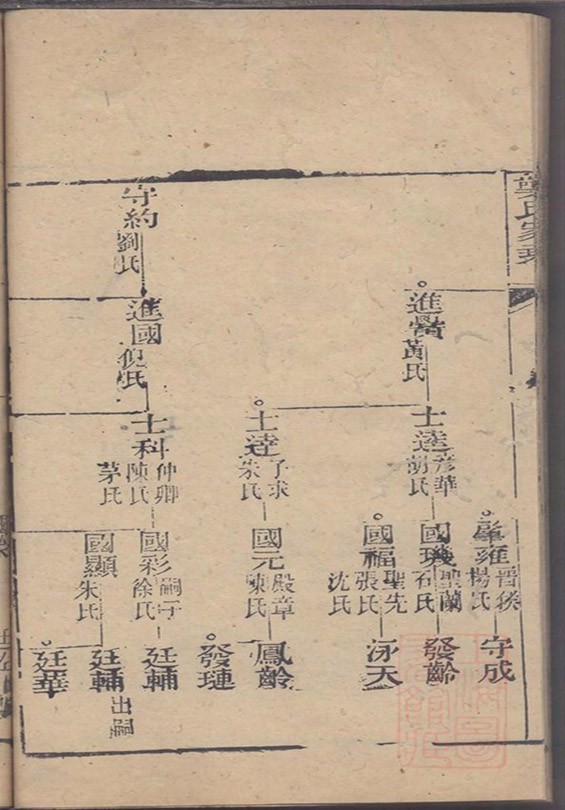 龔氏家乘
進賢
黃氏
士達
彦華
胡氏
肇雍
晋猴
楊氏
守成
國璣
聖蘭
石氏
發齡
國福
聖先
張氏
沈氏
泳天
士達
子求
朱氏
國元
殿章
陳氏
鳳齡
發璉
守約
劉氏
進國
倪氏
士科
仲卿
陳氏
茅氏
國彩
嗣子
徐氏
廷輔
國顯
朱氏
廷輔
出嗣
廷華